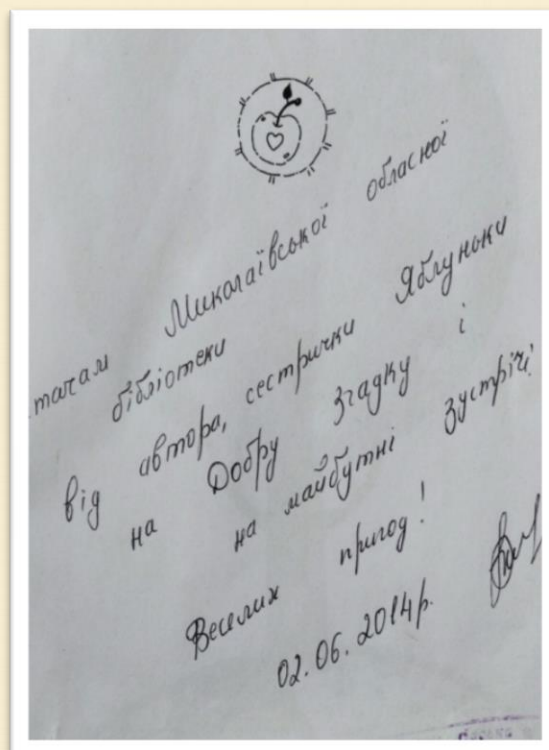 Миколаївської обласної
бібліотеки
від автора, сестрички Яблуньки
на Добру згадку і
на майбутні зустрічі
Веселих пригод!
02.06.2014р.